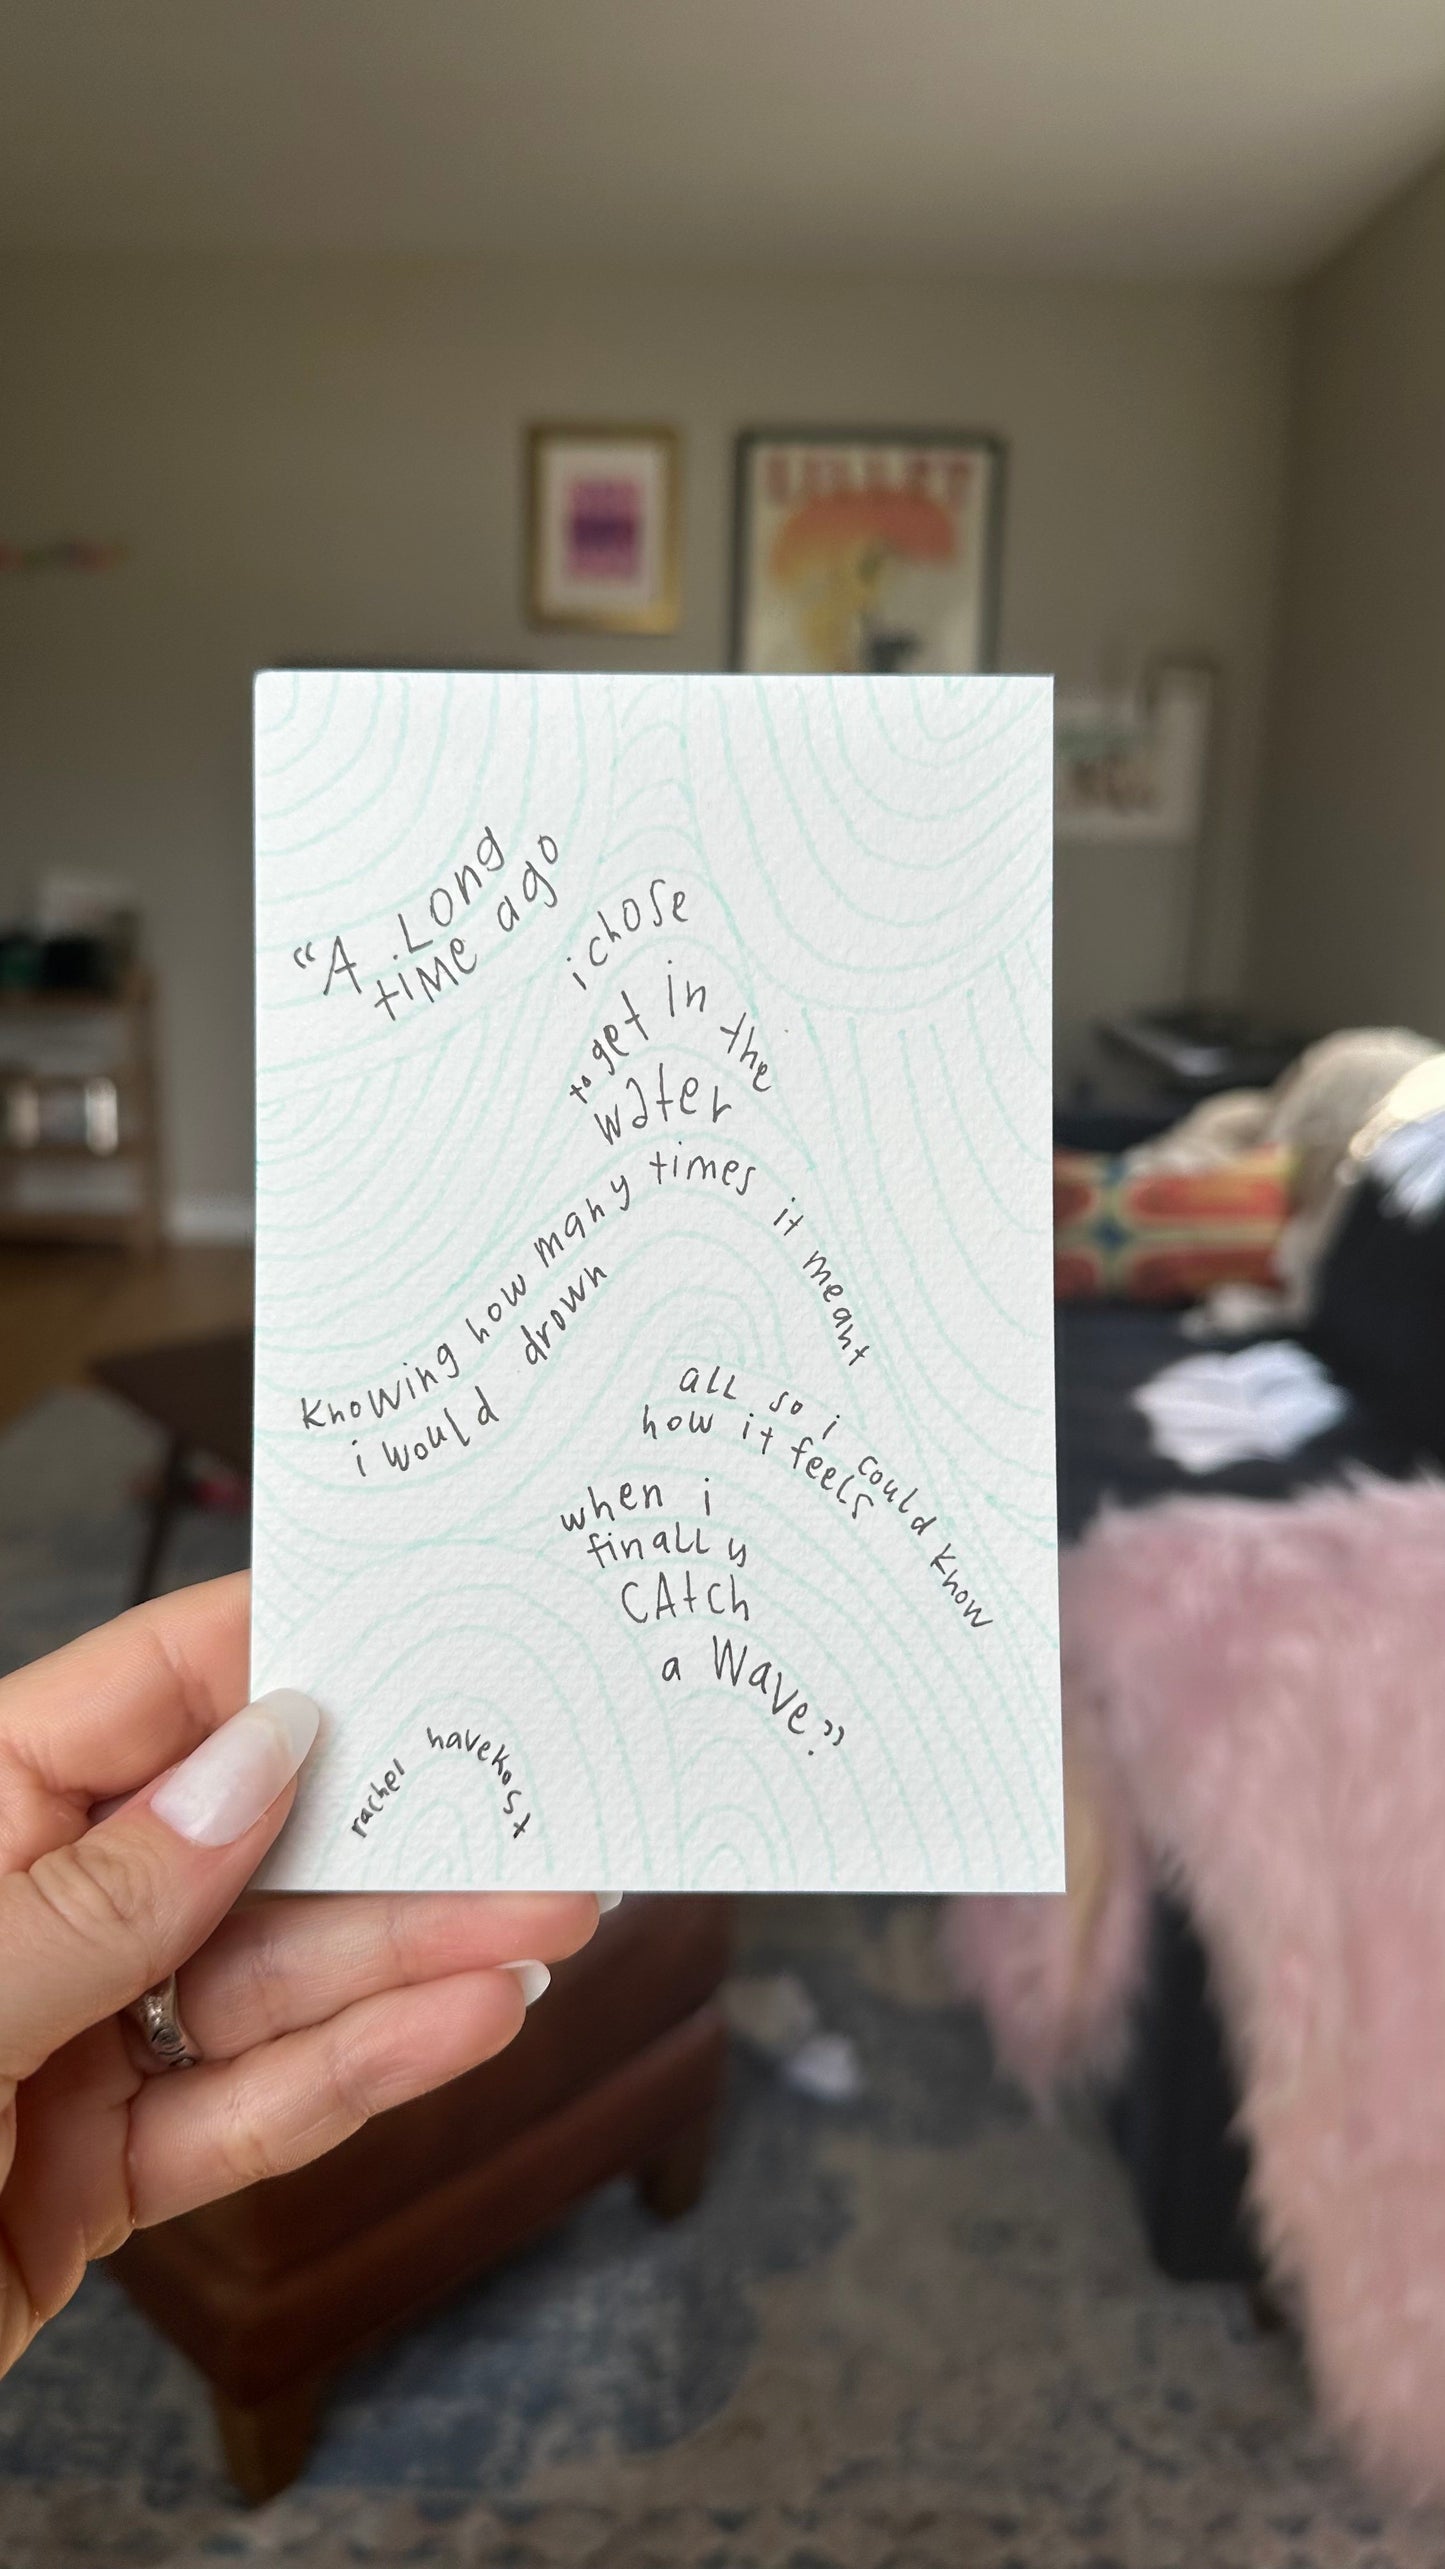 “A Long
time ago
i chose
to get in the
water
Knowing how many times it meant
i would drown
all so i could know
how it feels
when i
finally
CAtch
a Wave.”
rachel havekost